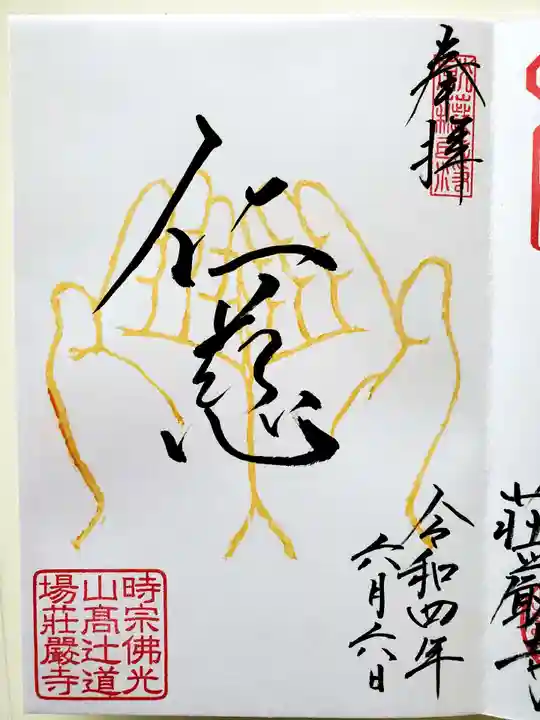 奉拝
仁慈
令和四年
六月六日
時宗佛光
山高辻道
場荘嚴寺
荘厳寺